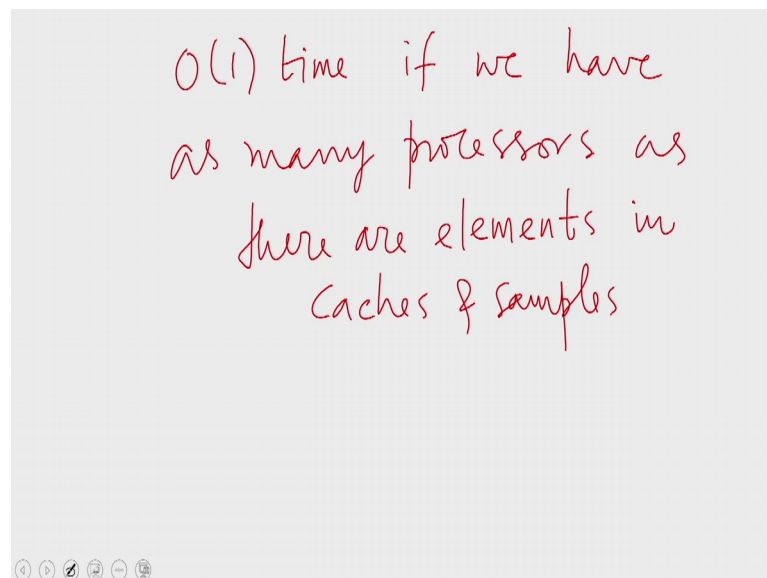 O(1) time if we have
as many processors as
there are elements in
caches & samples